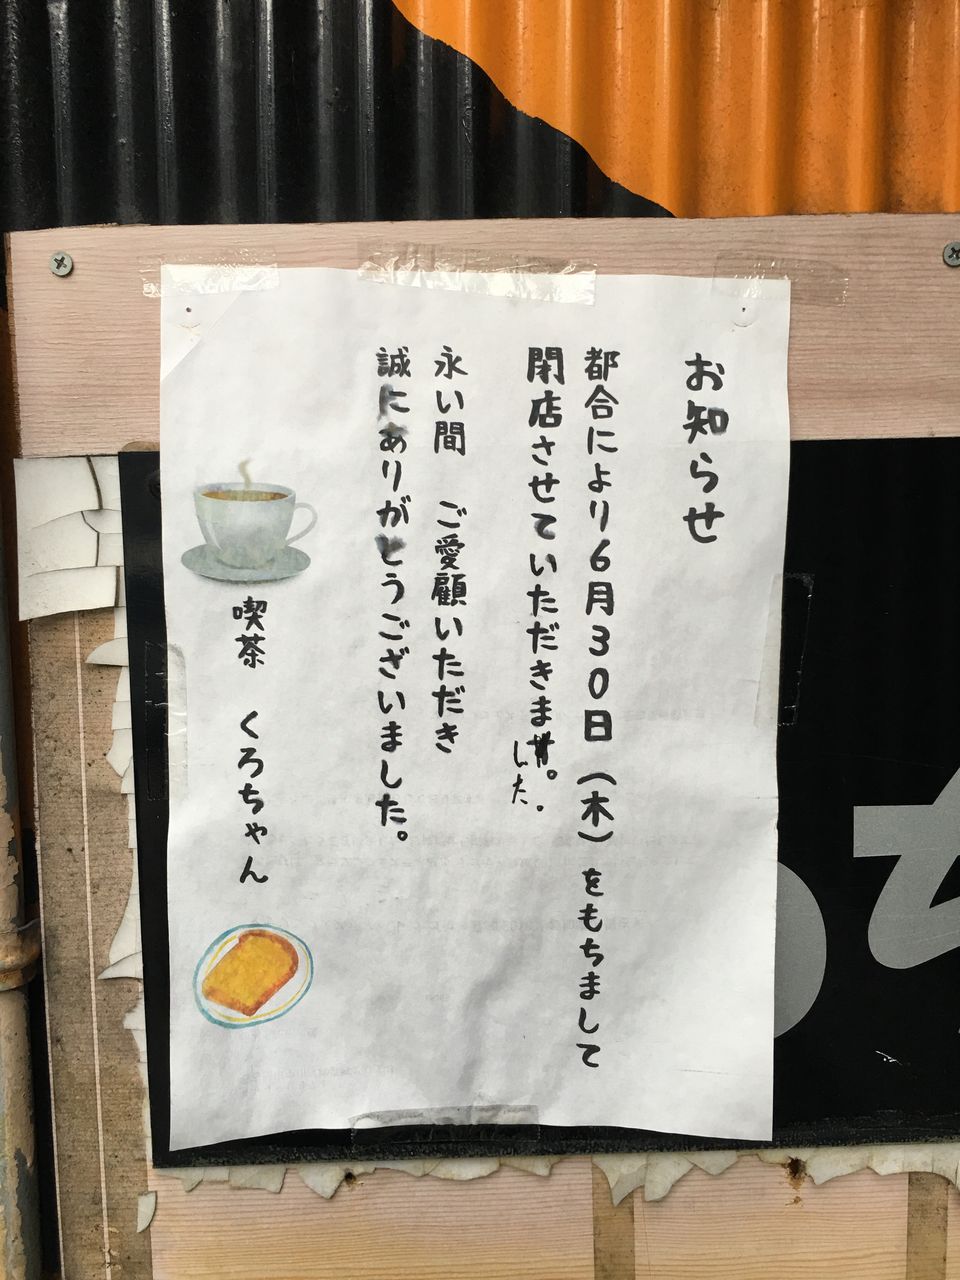 お知らせ
都合により6月30日(木)をもちまして
閉店させていただきます。
した.
永い間 ご愛顧いただき
誠にありがとうございました。
喫茶 くろちゃん